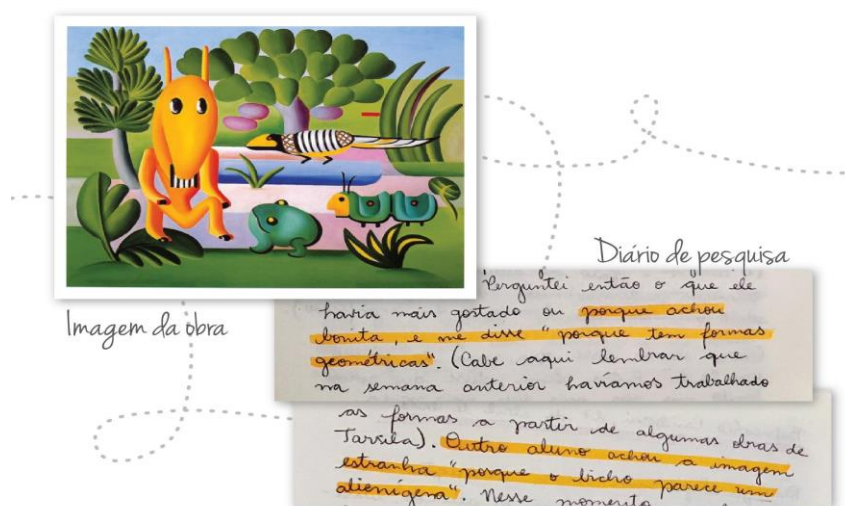 Imagem da obra
Diário de pesquisa
Perguntei então o que ele
havia mais gostado ou porque achou
bonita, e me disse "porque tem formas
geométricas". (Cabe aqui lembrar que
na semana anterior havíamos trabalhado
as formas a partir de algumas obras de
Tarsila). Outro aluno achou a imagem
estranha "porque o bicho parece um
alienígena". Nesse momento